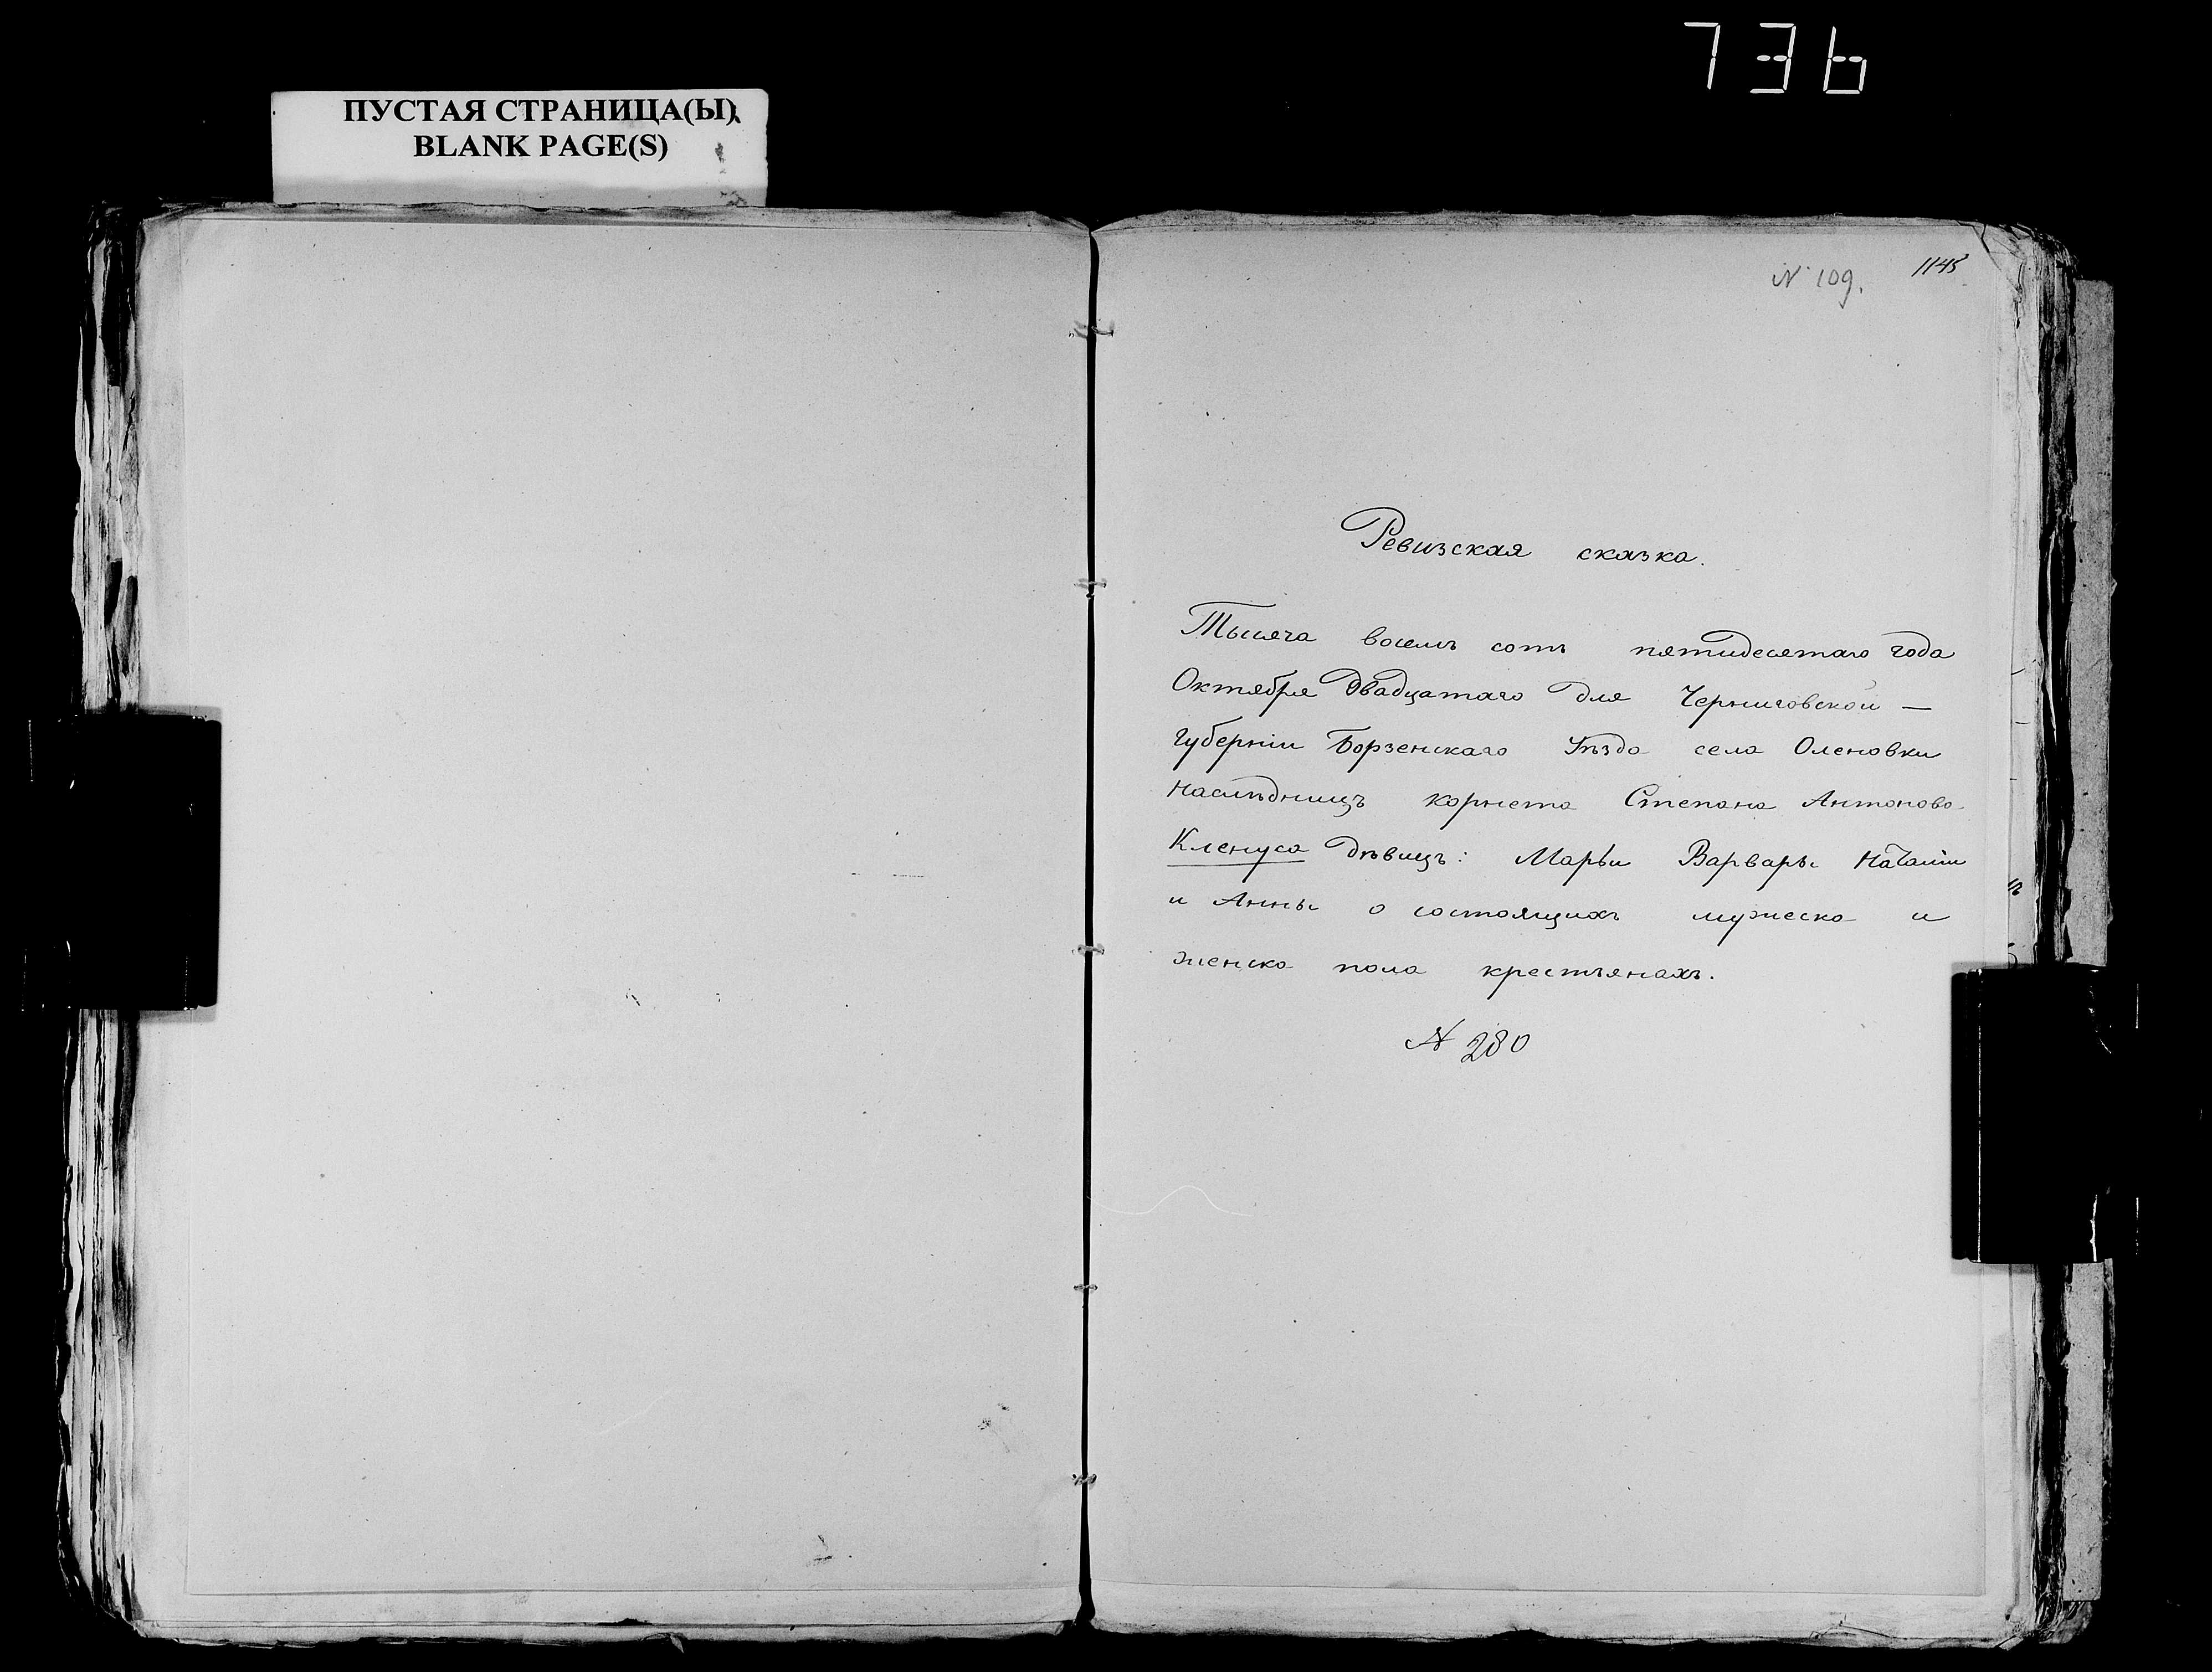 736
ПУСТАЯ СТРАНИЦА(Ы)
BLANK PAGE(S)
N 109.
1145
Ревизская сказка.
Тысяча восемь сотъ пятидесятаго года
Октября двадцатаго дня Черниговской —
Губерніи Борзенскаго Уѣзда села Оленовки
Наслѣдницъ корнета Степана Антонова
Кленуса дѣвицъ: Марьи Варвары Наталіи
и Анны о состоящихъ мужеска и
женска пола крестьянахъ.
N 280